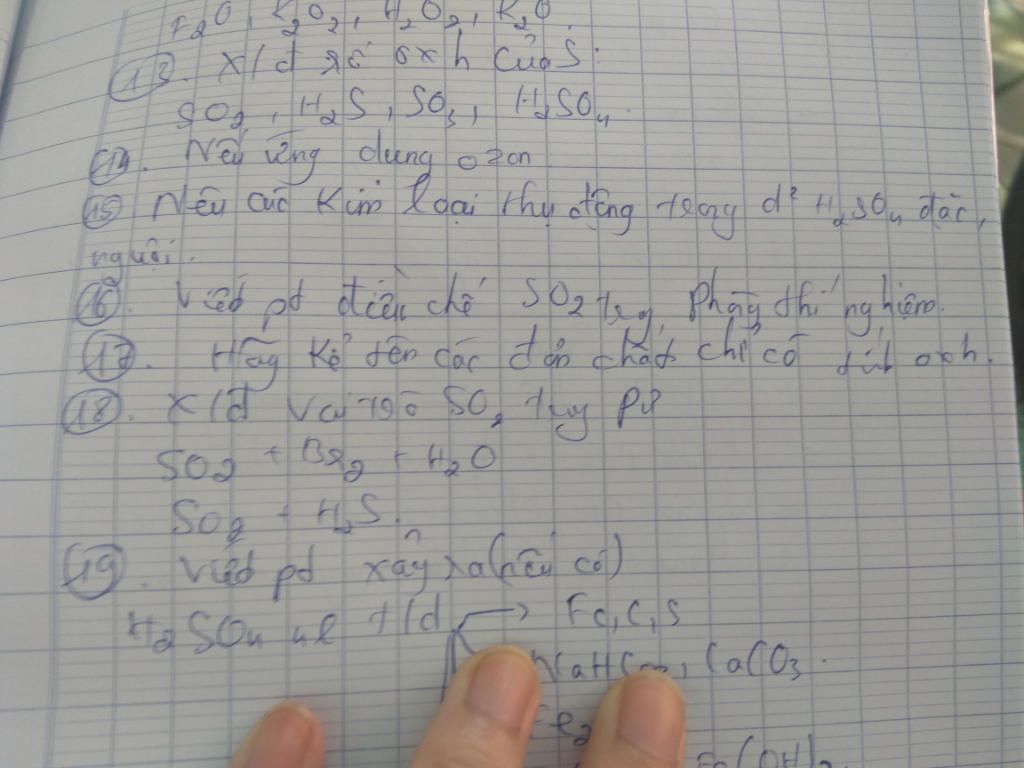 F₂O, K₂O₂, H₂O₂, K₂O.
13. X/đ số oxh của S.
SO₂, H₂S, SO₃, H₂SO₄.
14. Nêu ứng dụng ozon
15 Nêu các kim loại thụ động trong d² H₂SO₄ đặc,
nguội.
16. Viết pt điều chế SO₂ trg phòng thí nghiệm.
17. Hãy kể tên các đơn chất chỉ có tính oxh.
18. X/đ vai trò SO₂ trg pứ
SO₂ + Br₂ + H₂O
SO₂ + H₂S.
19. Viết pt xảy ra (nếu có)
H₂SO₄ + /d → Fe, C, S
CaCO₃.
(OH)₂